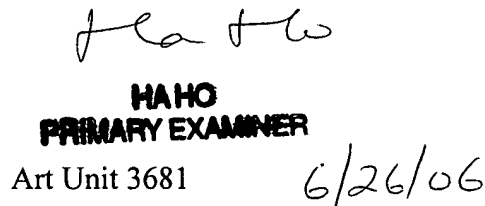 Ha Ho
HA HO
PRIMARY EXAMINER
Art Unit 3681 6/26/06